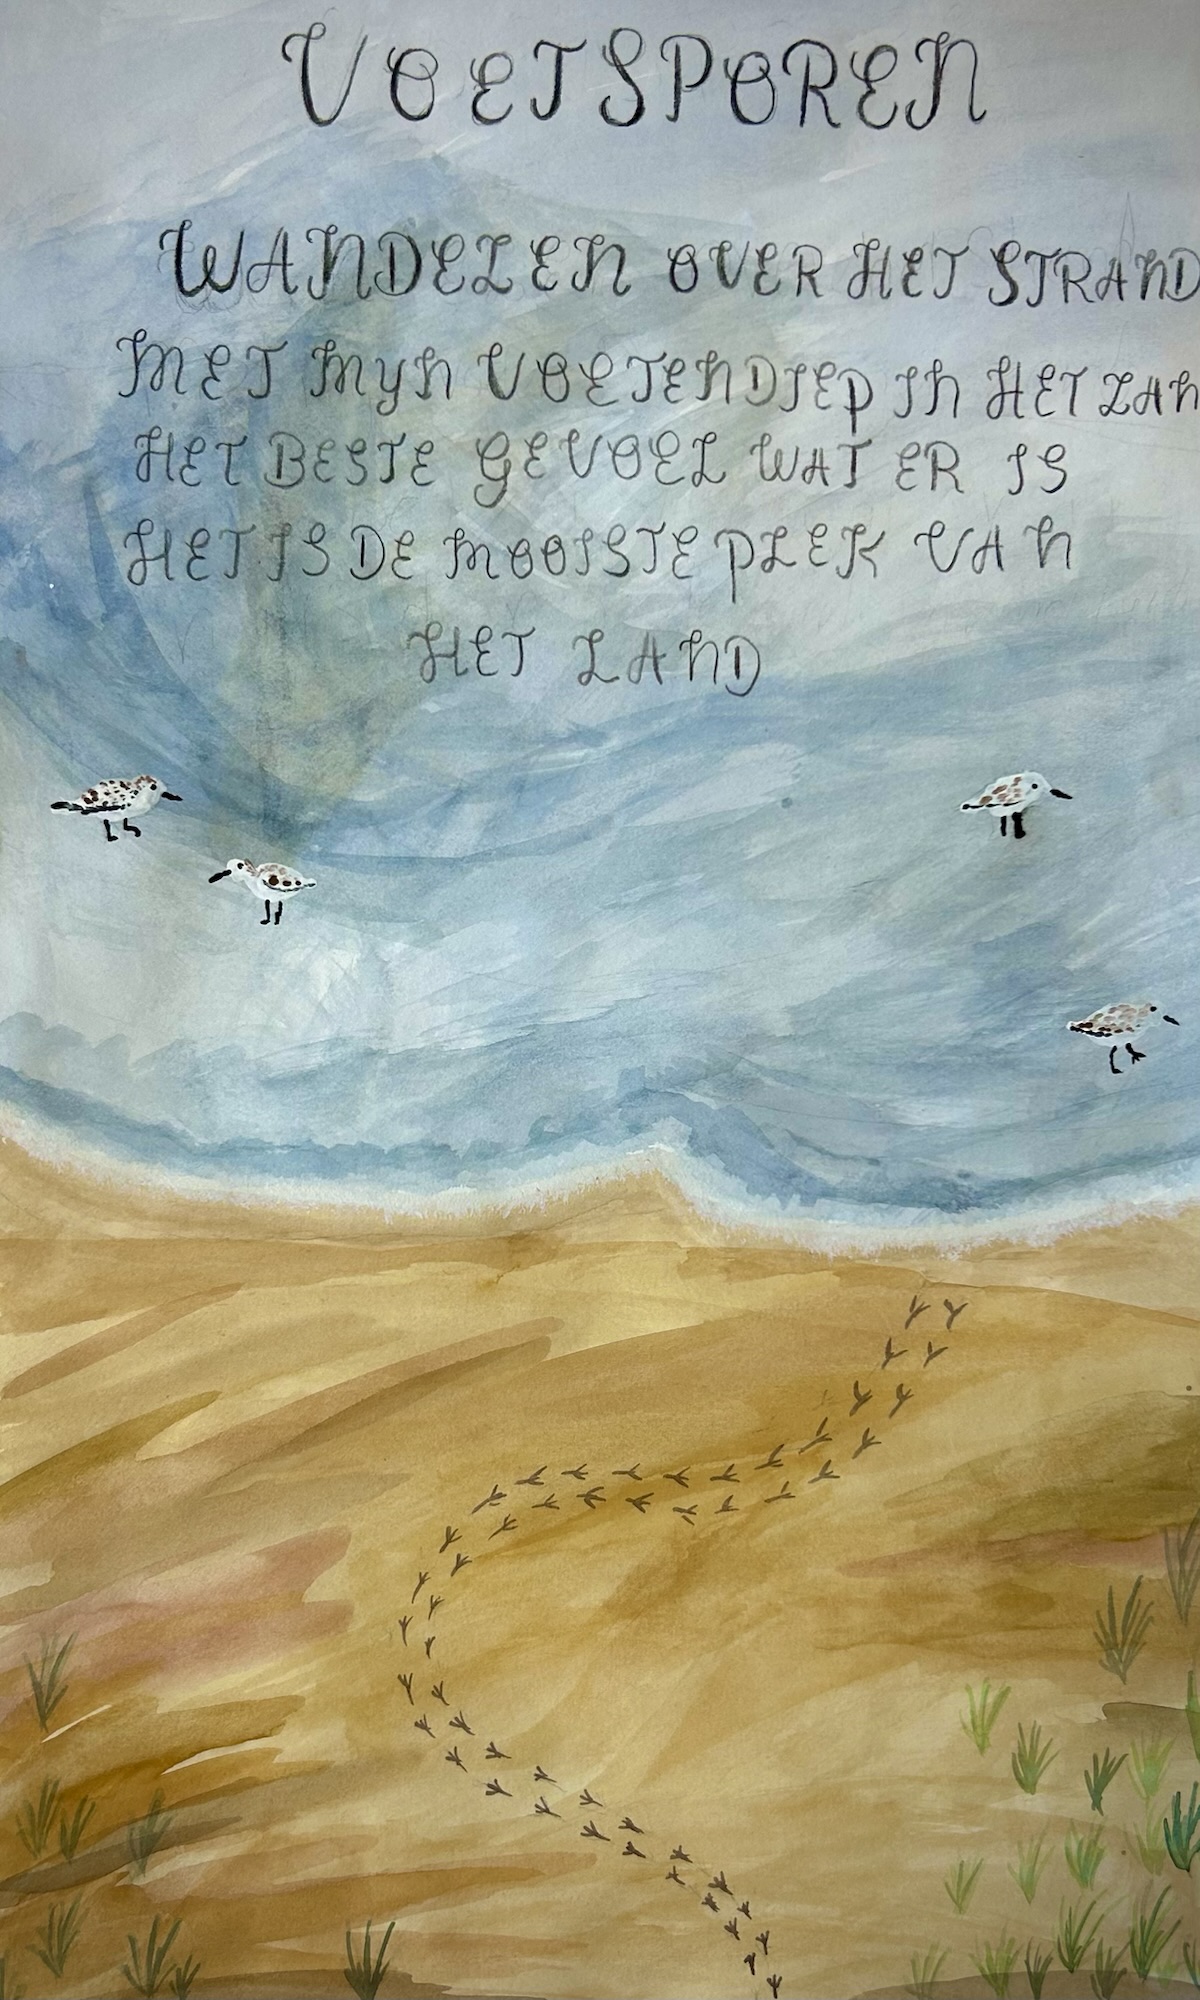 VOETSPOREN
WANDELEN OVER HET STRAND
MET MYN VOETEN DIEP IN HET ZAN
HET BESTE GEVOEL WAT ER IS
HET IS DE MOOISTE PLEK VAN
HET LAND